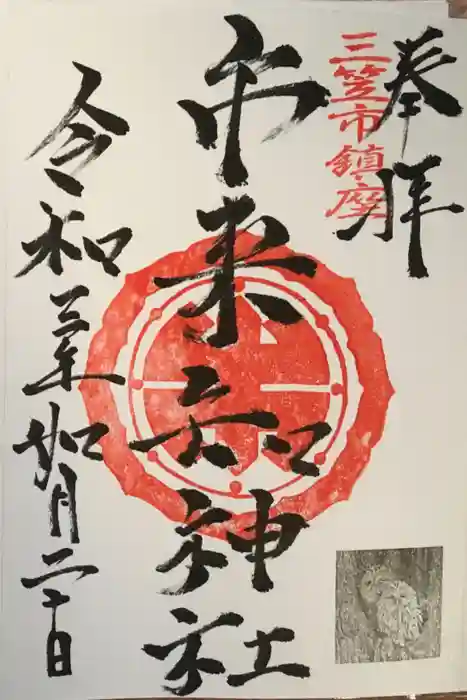 奉拝
三笠市鎮座
市来知神社
令和三年如月二十日